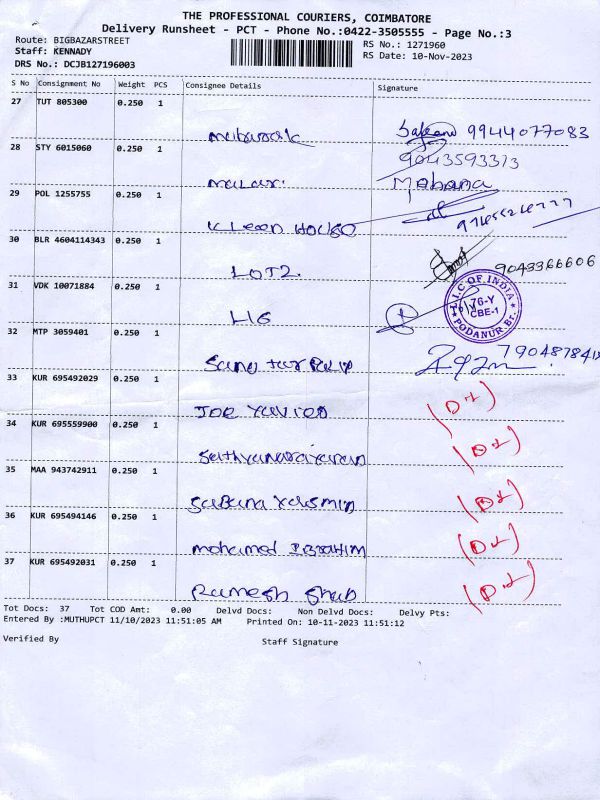 THE PROFESSIONAL COURIERS, COIMBATORE
Delivery Runsheet - PCT - Phone No.:0422-3505555 - Page No.:3
Route: BIGBAZARSTREET
RS No.: 1271960
Staff: KENNADY
RS Date: 10-Nov-2023
DRS No.: DCJB127196003
S No Consignment No Weight PCS Consignee Details Signature
27 TUT 805300 0.250 1
Mubarak 9944077083
28 STY 6015060 0.250 1
9043593313
Malar. Mahana
29 POL 1255755 0.250 1
Kleen House
30 BLR 4604114343 0.250 1
LOT2. 9043366606
31 VDK 10071884 0.250 1
L.I.C OF INDIA
76-Y
CBE-1
PODANUR Br.
LIG
32 MTP 3059401 0.250 1
33 KUR 695492029 0.250 1
Joe Xavier
34 KUR 695559900 0.250 1
Sathyanarayanan
35 MAA 943742911 0.250 1
Sabana Yasmin
36 KUR 695494146 0.250 1
Mohamed Ibrahim
37 KUR 695492031 0.250 1
Ramesh Shab
Tot Docs: 37 Tot COD Amt: 0.00 Delvd Docs: Non Delvd Docs: Delvy Pts:
Entered By :MUTHUPCT 11/10/2023 11:51:05 AM Printed On: 10-11-2023 11:51:12
Verified By Staff Signature